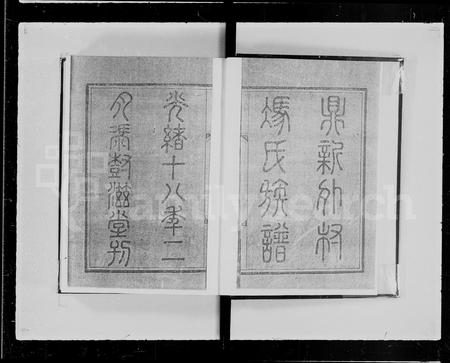 鼎新外村
馮氏族譜
光緒十八年二
月馮樹滋堂刊
FamilySearch